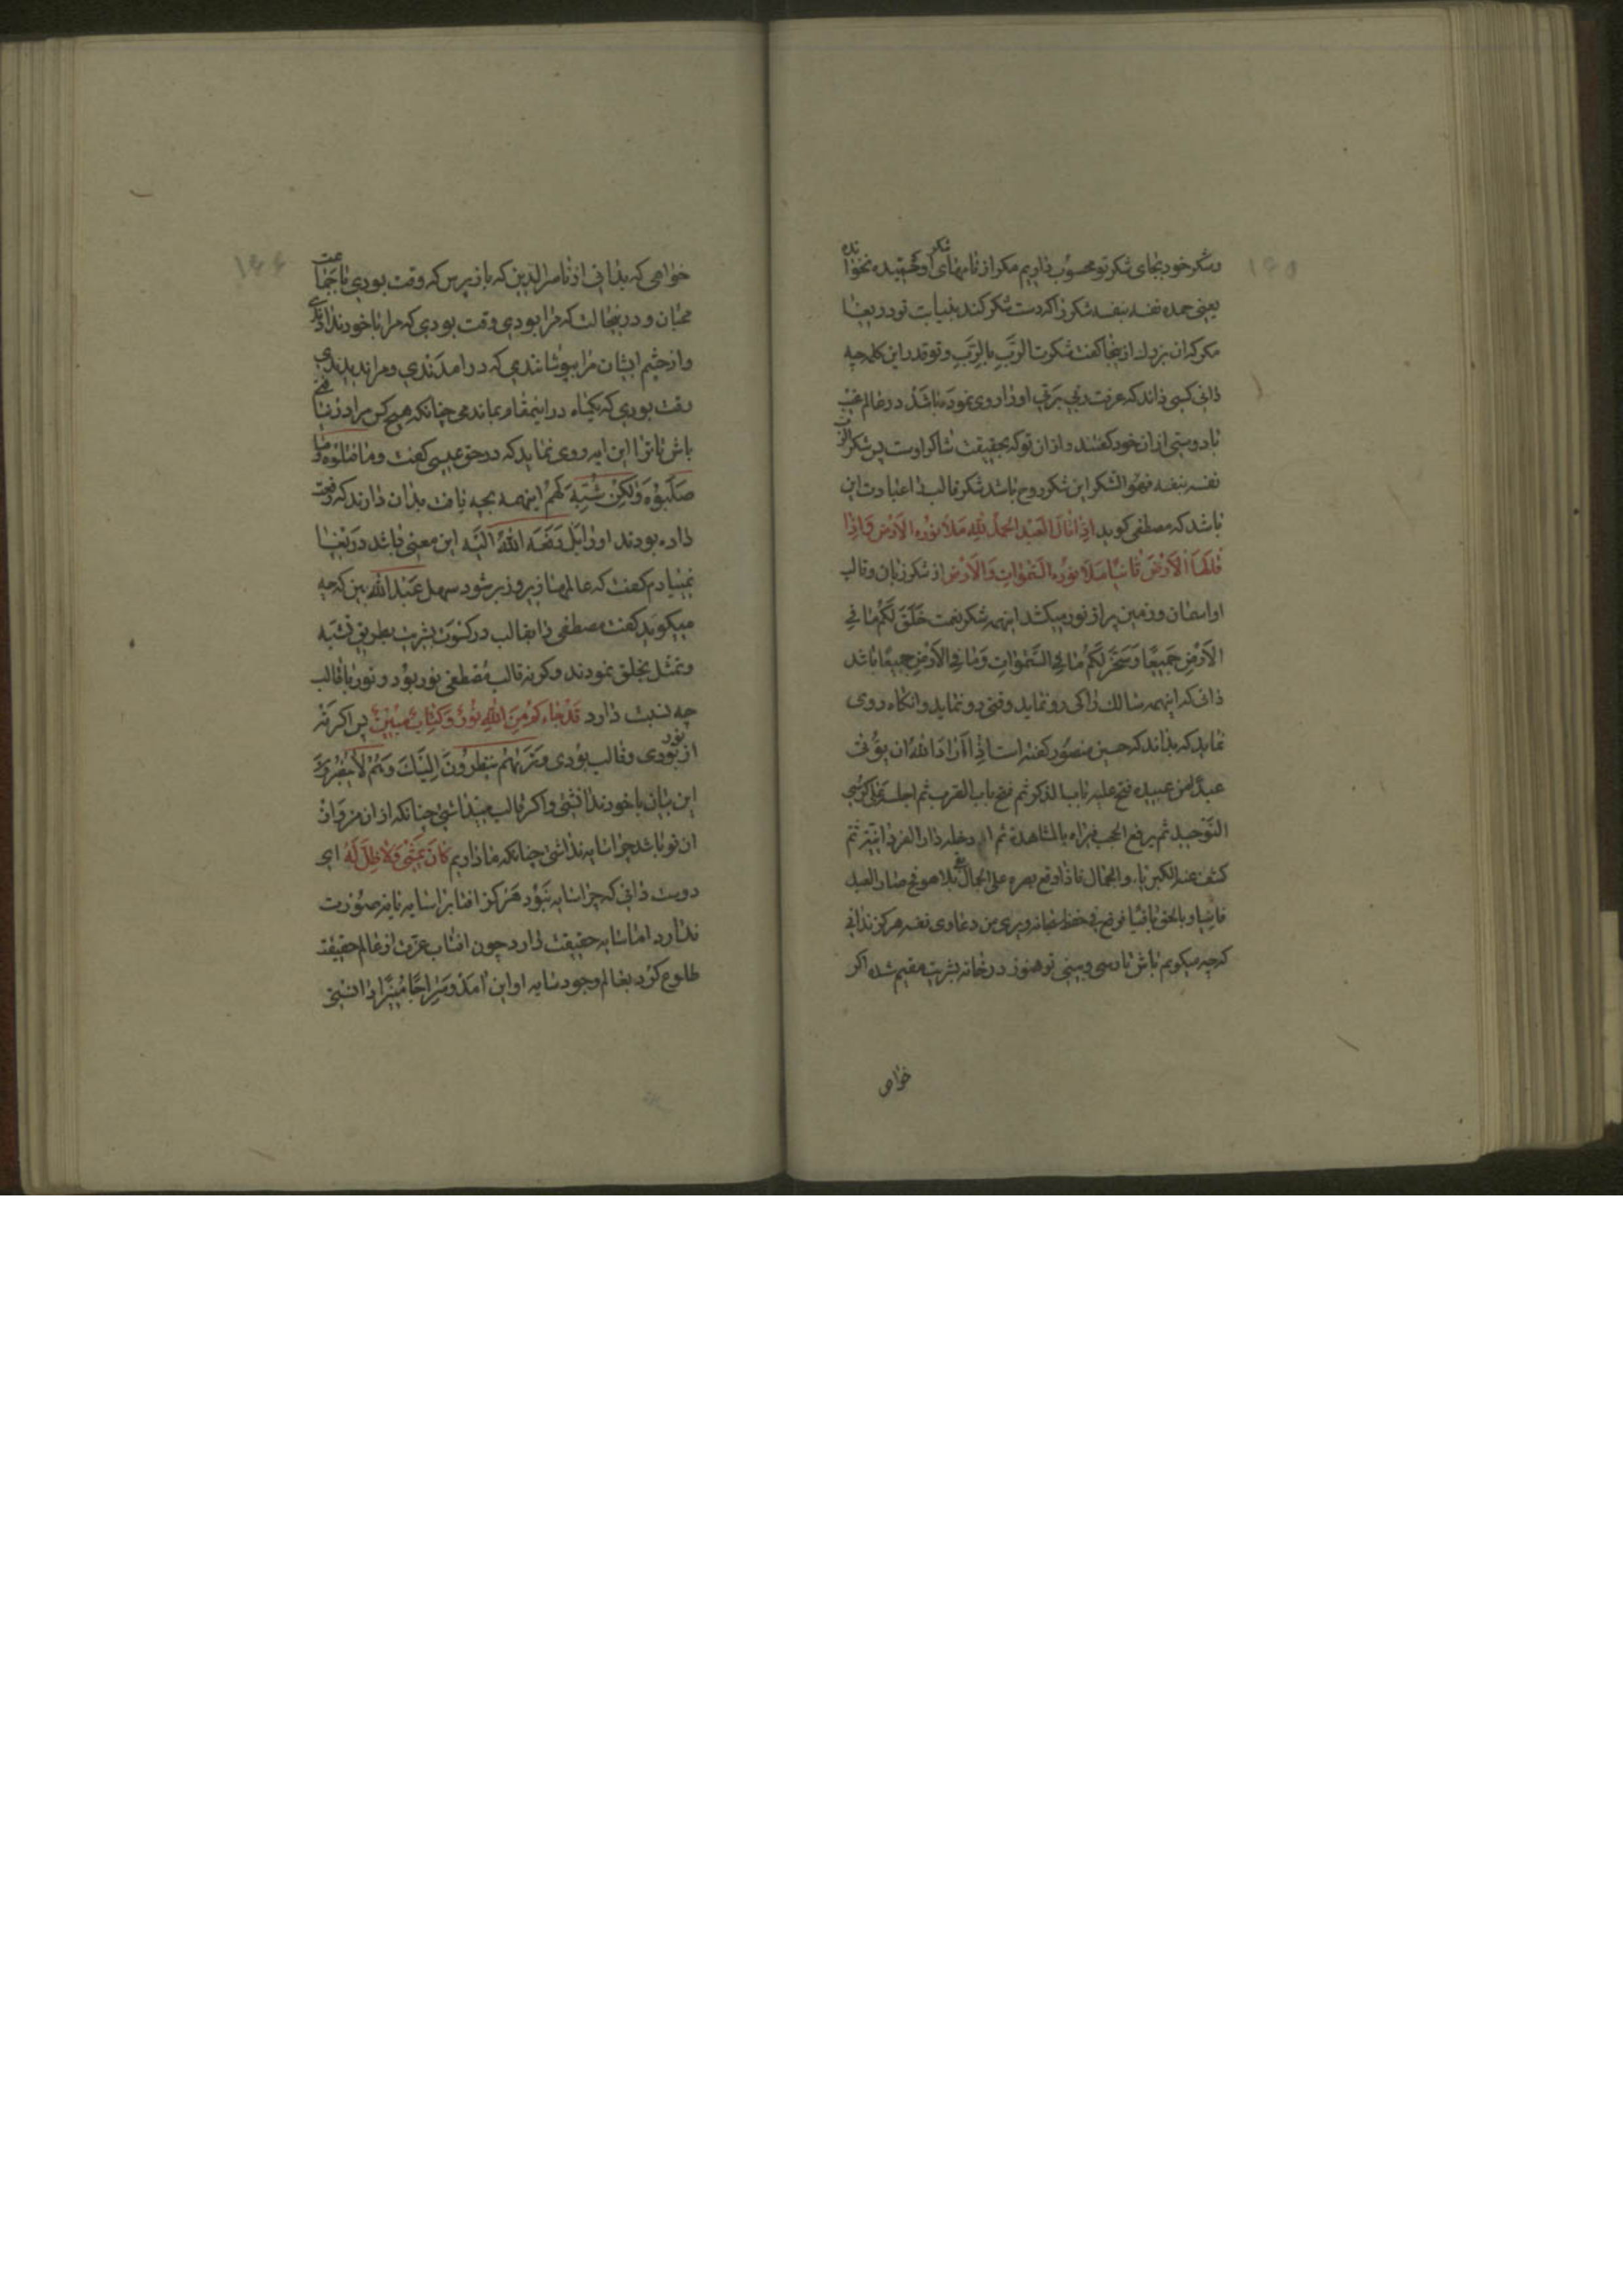 ۱۶۵
وشکر خود بجای شکر تو محسوب داریم مکر از نامهای او شکر و نخوانده
یعنی حمده نفسه بنفسه شکر را کدست شکر کند بنیابت تو دریغا
مکر کران بزرك ازینجا کفت شکرت الرَّبَ بِالرَّبِ و تو قدر این کلمه چه
دانی کسی داند که عزت وی اورا روی نموده باشد در عالم غیب
تا دوستی از ان خود کفتند و از ان تو که بحقیقت شاکر اوست پس شکر
نفسه بنفسه فهو الشکر این شکر روح باشد شکر قالب اعبادت این
باشد که مصطفی کوید اِذا قالَ العَبْدُ الحَمدُ لِلّٰهِ مَلَأ نورُه الاَرْضَ وَاِذا
قالَها ثانیاً مَلَأ نورُه السَّمٰوٰاتِ وَالاَرْضَ از شکر زبان و قالب
او اسمان و زمین پر از نور میکشد اینهمه شکر نعمت خَلَقَ لَکُمْ مٰا فِی
الاَرْضِ جَمیعًا وَ سَخَّرَ لَکُمْ مٰا فِی السَّمٰوٰاتِ وَمٰا فِی الاَرْضِ جَمیعًا باشد
دانی که اینهمه سالك را کی رو نماید وقتی رو نماید و انکاه روی
نماید که بداند که حسین منصور کفته است اِذٰا اَرٰادَ اللّٰهُ ان یوُلّی
عبدًا من عبیده فتح علیه باب الذکر ثم فتح باب القرب ثم اجلسه علی کرسی
التّوحید ثم یرفع الحجب فیراه بالمشاهدة ثم ادخله دار الفردانیّة ثم
کشف عنه الکبریاء والجمال فاذا وقع بصره علی الجمال بقی بلا هو فح صار العبد
فانیًا و بالحق باقیًا فوقع فی حفظ سبحانه و بری من دعاوی نفسه هرکز ندانی
که چه میکویم باش تا رسی و بینی تو هنوز در خانه بشریت مقیم شده اکر
خواهی
۱۶۶
خواهی که بدانی از ناصر الدین که باز پرس که وقت بودی با جماعت
محبان و درینحالت که مرا بودی وقت بودی که مرا با خود ندادندی
و از چشم ایشان مرا بپوشانیدی که در امدندی و مرا ندیدندی
وقت بودی که یکماه در اینمقام بماندمی چنانکه هیچ کس مرا در نیافتی
باش تا ترا این ایه روی نماید که در حق عیسی کفت ومٰا قَتَلوُهُ وَمٰا
صَلَبوُهُ وَلٰکِنْ شُبِّهَ لَهُمْ اینهمه بچه یافت بدان دارند که رفعت
داده بودند اورا بَلْ رَفَعَهُ اللّٰهُ اِلَیْه این معنی باشد دریغا
نمییارم کفت که عالمها زیر و زبر شود سهل عَبْدُ اللّٰه بین که چه
میکوید کفت مصطفی را بقالب در کسوت بشریت بطریق تشبّه
وتمثل بخلق نمودند و کرنه قالب مُصْطَفی نور بود و نور با قالب
چه نسبت دارد قَدْ جٰاءَکُمْ مِنَ اللّٰهِ نوُرٌ وَکِتٰابٌ مُبینٌ پس اکر نه
از نور بودی و قالب بودی وَتَریٰهُمْ یَنْظُروُنَ اِلَیْكَ وَهُمْ لٰا یُبْصِروُنَ
این بیان با خود نداشتی و اکر قالب میداشتی چنانکه از ان من و ان
ان تو باشد چرا سایه نداشتی چنانکه ما داریم کٰانَ یَمْشی وَلٰا ظِلَّ لَهُ ای
دوست دانی که چرا سایه نبود هرکز افتاب را سایه نباشد صورت
ندارد اما سایه حقیقت دارد چون افتاب عزت از عالم حقیقت
طلوع کرد بعالم وجود سایه او این امد وَسِرٰاجًا مُنیرًا دانستی